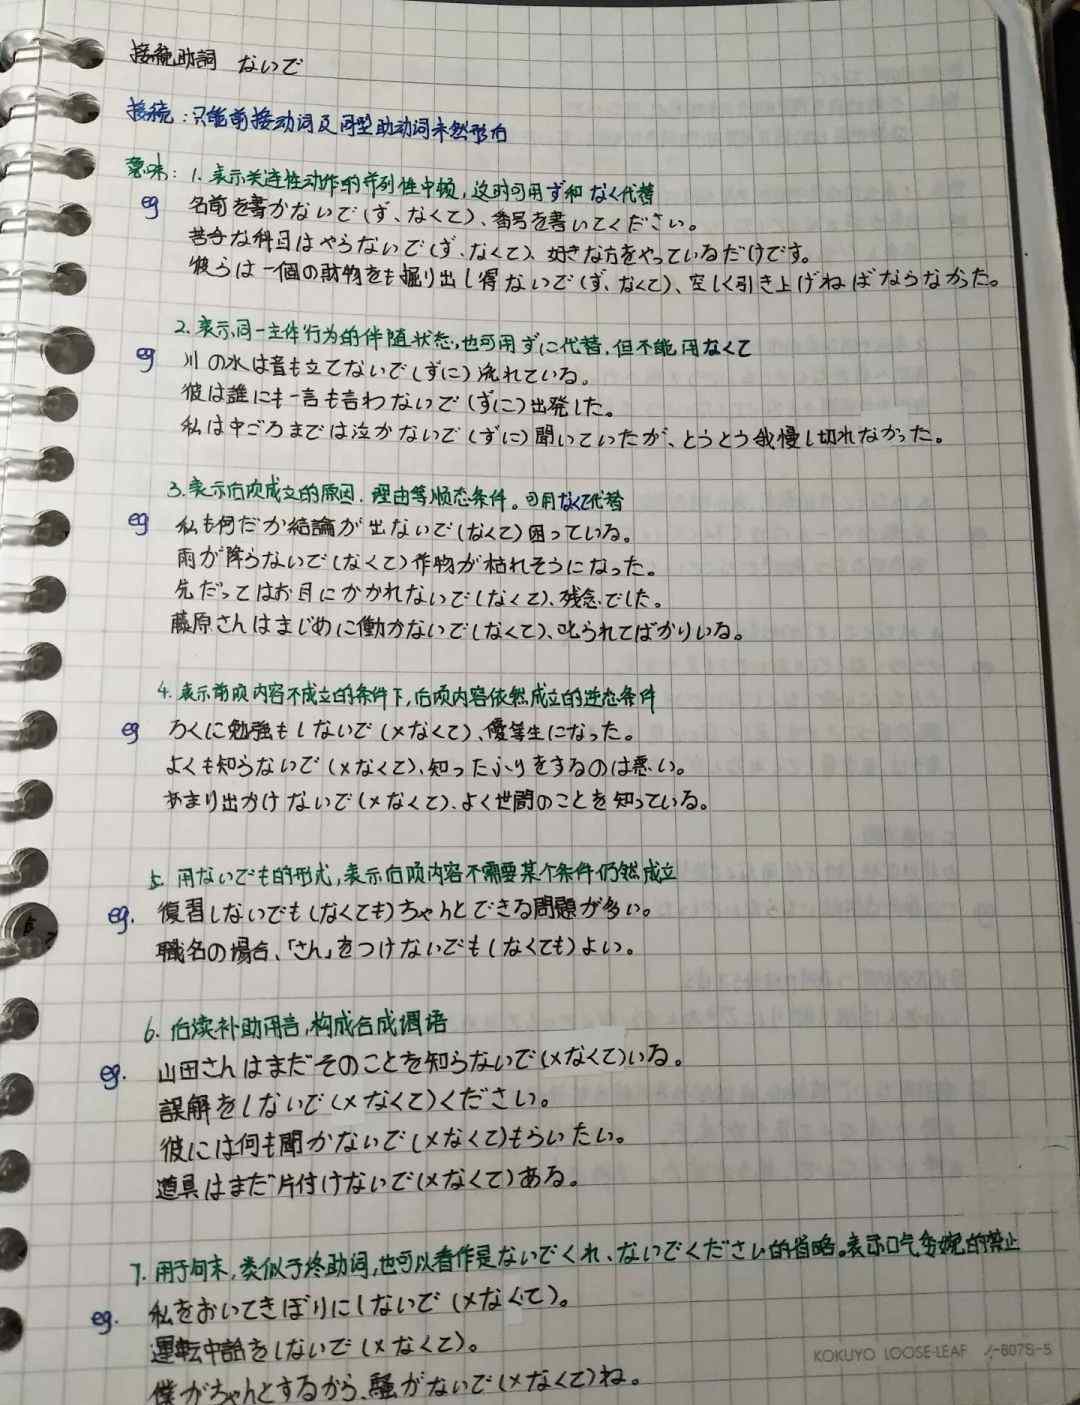 接続助詞 ないで
接続：只能前接动词及同型助动词未然形后
意味：1. 表示关连性动作的并列性中顿，这时可用ず和なく代替
eg 名前を書かないで(ず、なくて)、番号を書いてください。
苦手な科目はやらないで(ず、なくて)、好きな方をやっているだけです。
彼らは一個の財物をも掘り出し得ないで(ず、なくて)、空しく引き上げねばならなかった。
2. 表示同一主体行为的伴随状态，也可用ずに代替，但不能用なくて
eg 川の水は音も立てないで(ずに)流れている。
彼は誰にも一言も言わないで(ずに)出発した。
私は中ごろまでは泣かないで(ずに)聞いていたが、とうとう我慢し切れなかった。
3. 表示后项成立的原因、理由等顺态条件。可用なくて代替
eg 私も何だか結論が出ないで(なくて)困っている。
雨が降らないで(なくて)作物が枯れそうになった。
先だってはお目にかかれないで(なくて)、残念でした。
藤原さんはまじめに働かないで(なくて)、叱られてばかりいる。
4. 表示前项内容不成立的条件下，后项内容依然成立的逆态条件
eg ろくに勉強もしないで(×なくて)、優等生になった。
よくも知らないで(×なくて)、知ったふりをするのは悪い。
あまり出かけないで(×なくて)、よく世間のことを知っている。
5. 用ないでも的形式，表示后项内容不需要某个条件仍然成立
eg. 復習しないでも(なくても)ちゃんとできる問題が多い。
職名の場合、「さん」をつけないでも(なくても)よい。
6. 后续补助用言，构成合成谓语
eg. 山田さんはまだそのことを知らないで(×なくて)いる。
誤解をしないで(×なくて)ください。
彼には何も聞かないで(×なくて)もらいたい。
道具はまだ片付けないで(×なくて)ある。
7. 用于句末，类似于终助词，也可以看作是ないでくれ、ないでください的省略。表示口气委婉的禁止
eg. 私をおいてきぼりにしないで(×なくて)。
運転中話をしないで(×なくて)。
僕がちゃんとするから、騒がないで(×なくて)ね。
KOKUYO LOOSE-LEAF ノ-807S-5